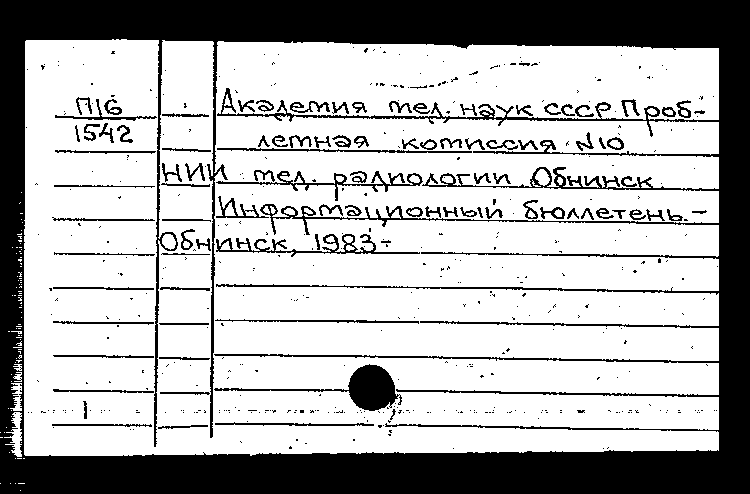 П16 Академия мед. наук СССР Проб-
1542 лемная комиссия №10
НИИ мед. радиологии Обнинск.
Информационный бюллетень.-
Обнинск, 1983-
1